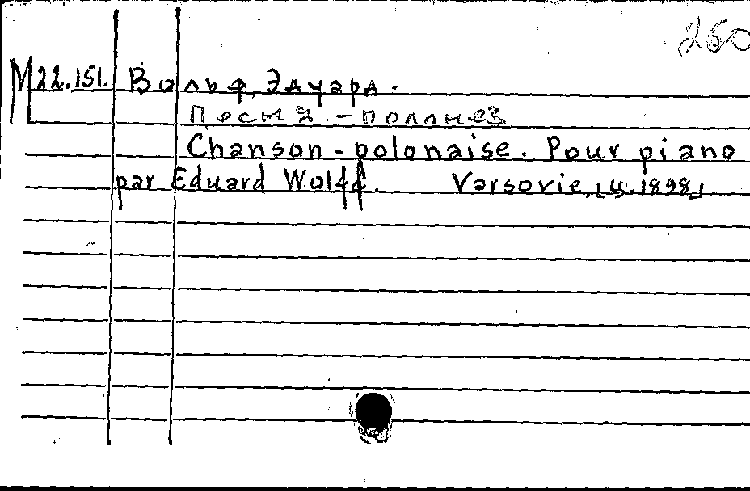 250
M 22.151. Вольф, Эдуард.
Песня - полонез
Chanson - polonaise. Pour piano
par Eduard Wolff. Varsovie, 1898